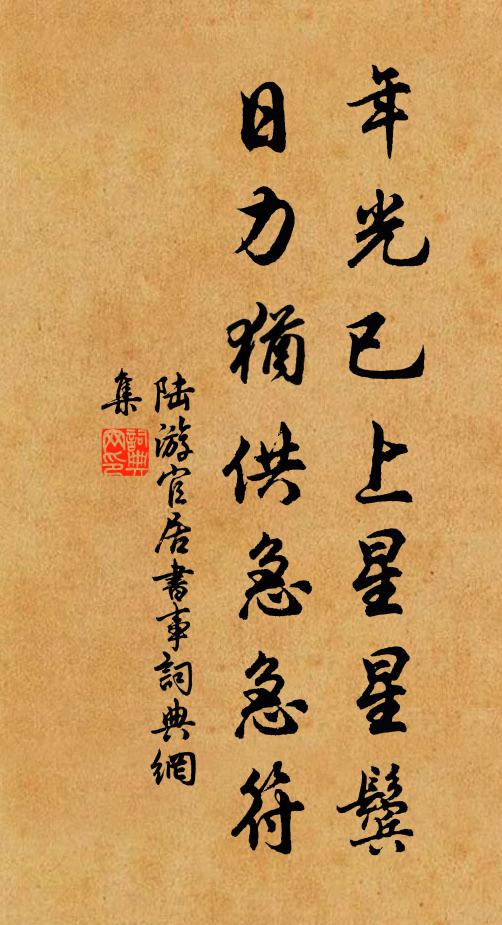 年光已上星星鬓
日力猶供急急符
陆游官居書事詞典網
集
詞典
网印